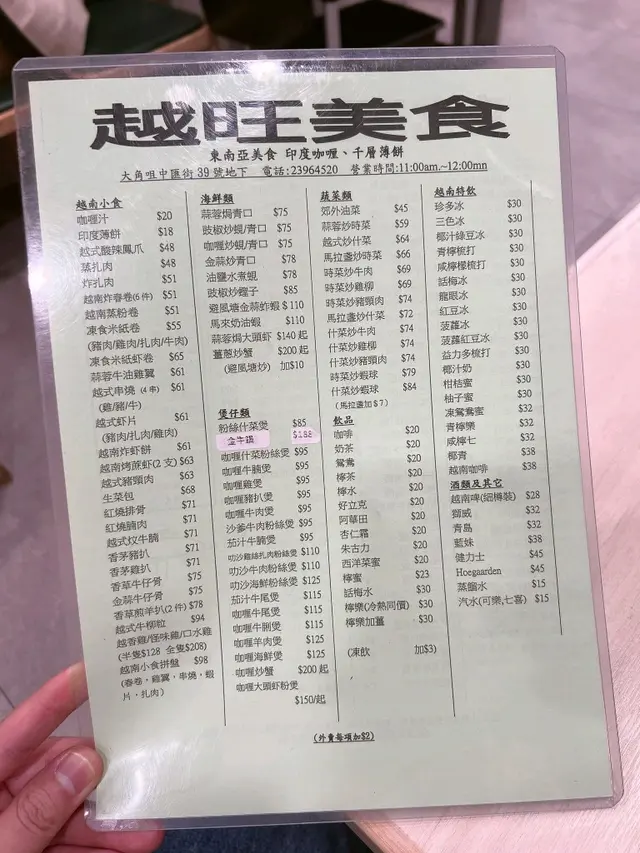 越旺美食
東南亞美食 印度咖喱、千層薄餅
大角咀中匯街 39 號地下 電話:23964520 營業時間:11:00am.~12:00mn
越南小食
咖喱汁 $20
印度薄餅 $18
越式酸辣鳳爪 $48
蒸扎肉 $48
炸扎肉 $51
越南炸春卷(6件) $51
越南蒸粉卷 $51
凍食米紙卷 $55
(豬肉/雞肉/扎肉/牛肉)
凍食米紙蝦卷 $65
蒜蓉牛油雞翼 $61
越式串燒 (4串) $61
(雞/豬/牛)
越式蝦片 $61
(豬肉/扎肉/雞肉)
越南炸蝦餅 $61
越南烤蔗蝦(2支) $63
越式豬頸肉 $63
生菜包 $68
紅燒排骨 $71
紅燒腩肉 $71
越式炆牛腩 $71
香茅豬扒 $71
香茅雞扒 $71
香草牛仔骨 $75
金蒜牛仔骨 $75
香草煎羊扒(2件) $78
越式牛柳粒 $94
越香雞/怪味雞/口水雞
(半隻$128 全隻$208)
越南小食拼盤 $98
(春卷、雞翼、串燒、蝦片、扎肉)
海鮮類
蒜蓉焗青口 $75
豉椒炒蜆/青口 $75
咖喱炒蜆/青口 $75
金蒜炒青口 $78
油鹽水煮蜆 $78
豉椒炒蟶子 $85
避風塘金蒜炸蝦 $110
馬來奶油蝦 $110
蒜蓉焗大頭蝦 $140起
薑蔥炒蟹 $200起
(避風塘炒) 加$10
煲仔類
粉絲什菜煲 $85
$188
咖喱什菜粉絲煲 $95
咖喱牛腩煲 $95
咖喱雞煲 $95
咖喱豬扒煲 $95
咖喱牛肉煲 $95
沙爹牛肉粉絲煲 $95
茄汁牛腩煲 $95
叻沙雞絲扎肉粉絲煲 $110
叻沙牛肉粉絲煲 $110
叻沙海鮮粉絲煲 $125
茄汁牛尾煲 $115
咖喱牛尾煲 $115
咖喱牛脷煲 $115
咖喱羊肉煲 $125
咖喱海鮮煲 $125
咖喱炒蟹 $200起
咖喱大頭蝦粉煲
$150/起
蔬菜類
郊外油菜 $45
蒜蓉炒時菜 $59
越式炒什菜 $64
馬拉盞炒時菜 $66
時菜炒牛肉 $69
時菜炒雞柳 $69
時菜炒豬頸肉 $74
馬拉盞炒什菜 $72
什菜炒牛肉 $74
什菜炒雞柳 $74
什菜炒豬頸肉 $74
時菜炒蝦球 $79
什菜炒蝦球 $84
(馬拉盞加$7)
飲品
咖啡 $20
奶茶 $20
鴛鴦 $20
檸茶 $20
檸水 $20
好立克 $20
阿華田 $20
杏仁霜 $20
朱古力 $20
西洋菜蜜 $20
檸蜜 $23
話梅水 $30
檸樂(冷熱同價) $30
檸樂加薑 $30
(凍飲 加$3)
越南特飲
珍多冰 $30
三色冰 $30
椰汁綠豆冰 $30
青檸梳打 $30
咸檸檬梳打 $30
話梅冰 $30
龍眼冰 $30
紅豆冰 $30
菠蘿冰 $30
菠蘿紅豆冰 $30
益力多梳打 $30
椰汁奶 $30
柑桔蜜 $30
柚子蜜 $30
凍鴛鴦蜜 $32
青檸樂 $32
咸檸七 $32
椰青 $38
越南咖啡 $38
酒類及其它
越南啤(細樽裝) $28
獅威 $32
青島 $32
藍妹 $38
健力士 $45
Hoegaarden $45
蒸餾水 $15
汽水(可樂,七喜) $15
(外賣每項加$2)